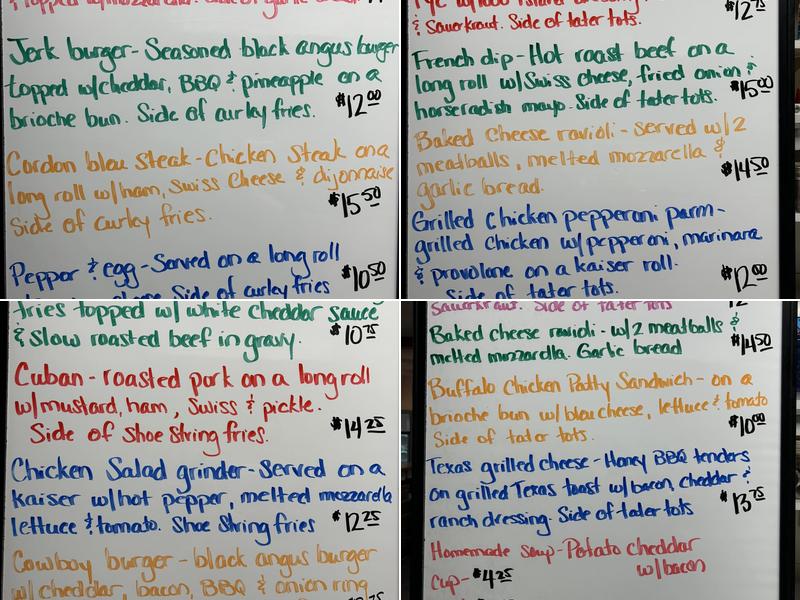 Jerk burger- Seasoned black angus burger
topped w/cheddar, BBQ & pineapple on a
brioche bun. Side of curley fries. $12.00
Cordon bleu Steak-Chicken Steak on a
long roll w/ham, Swiss Cheese & dijonnaise
Side of curley fries. $15.50
Pepper & egg-Served on a long roll
Side of curley fries $10.50
$12.75
& Sauerkraut. Side of tater tots.
French dip-Hot roast beef on a
long roll w/Swiss cheese, fried onion &
horseradish mayo. Side of tater tots. $15.00
Baked Cheese ravioli-served w/2
meatballs, melted mozzarella &
garlic bread. $14.50
Grilled Chicken pepperoni parm-
grilled chicken w/pepperoni, marinara
& provolone on a kaiser roll.
Side of tater tots. $12.00
fries topped w/ white cheddar sauce
& slow roasted beef in gravy. $10.75
Cuban- roasted pork on a long roll
w/mustard, ham, Swiss & pickle.
Side of Shoe String fries. $14.25
Chicken Salad grinder-Served on a
kaiser w/hot pepper, melted mozzarella
lettuce & tomato. Shoe String fries $12.25
Cowboy burger- black angus burger
w/ cheddar, bacon, BBQ & onion ring
Sauerkraut. Side of tater tots
Baked cheese ravioli- w/2 meatballs &
melted mozzarella. Garlic bread $14.50
Buffalo Chicken Patty Sandwich- on a
brioche bun w/bleu cheese, lettuce & tomato
Side of tater tots. $10.00
Texas grilled cheese-Honey BBQ tenders
on grilled Texas toast w/bacon, cheddar &
ranch dressing. Side of tater tots $13.75
Homemade Soup-Potato cheddar
w/bacon
Cup- $4.25